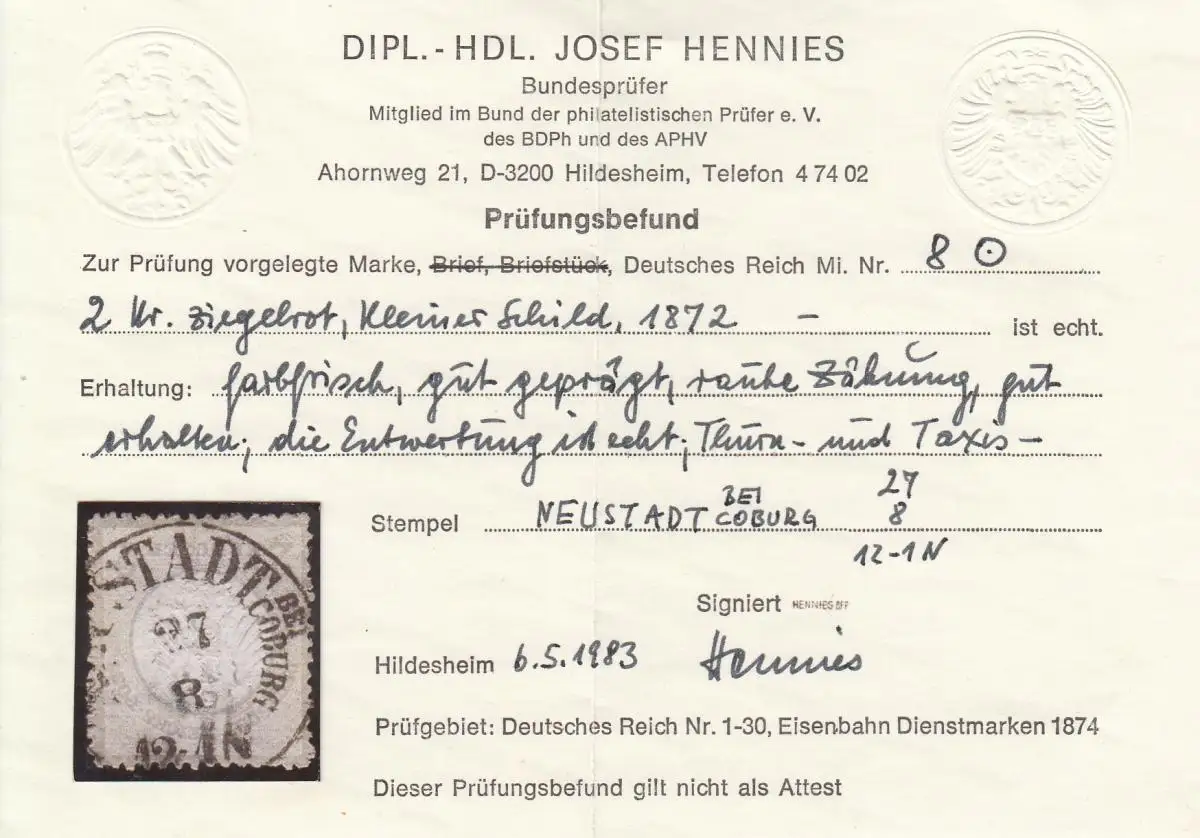 DIPL.-HDL. JOSEF HENNIES
Bundesprüfer
Mitglied im Bund der philatelistischen Prüfer e. V.
des BDPh und des APHV
Ahornweg 21, D-3200 Hildesheim, Telefon 4 74 02
Prüfungsbefund
Zur Prüfung vorgelegte Marke, Brief, Briefstück, Deutsches Reich Mi. Nr. 8 ⊙
2 Kr. ziegelrot, Kleiner Schild, 1872 – ist echt.
Erhaltung: farbfrisch, gut geprägt, rauhe Zähnung, gut
erhalten; die Entwertung ist echt; Thurn- und Taxis-
Stempel NEUSTADT BEI COBURG 27
8
12-1N
Signiert HENNIES BPP
Hildesheim 6.5.1983 Hennies
Prüfgebiet: Deutsches Reich Nr. 1-30, Eisenbahn Dienstmarken 1874
Dieser Prüfungsbefund gilt nicht als Attest
STADT BEI COBURG
27
8
12-1N